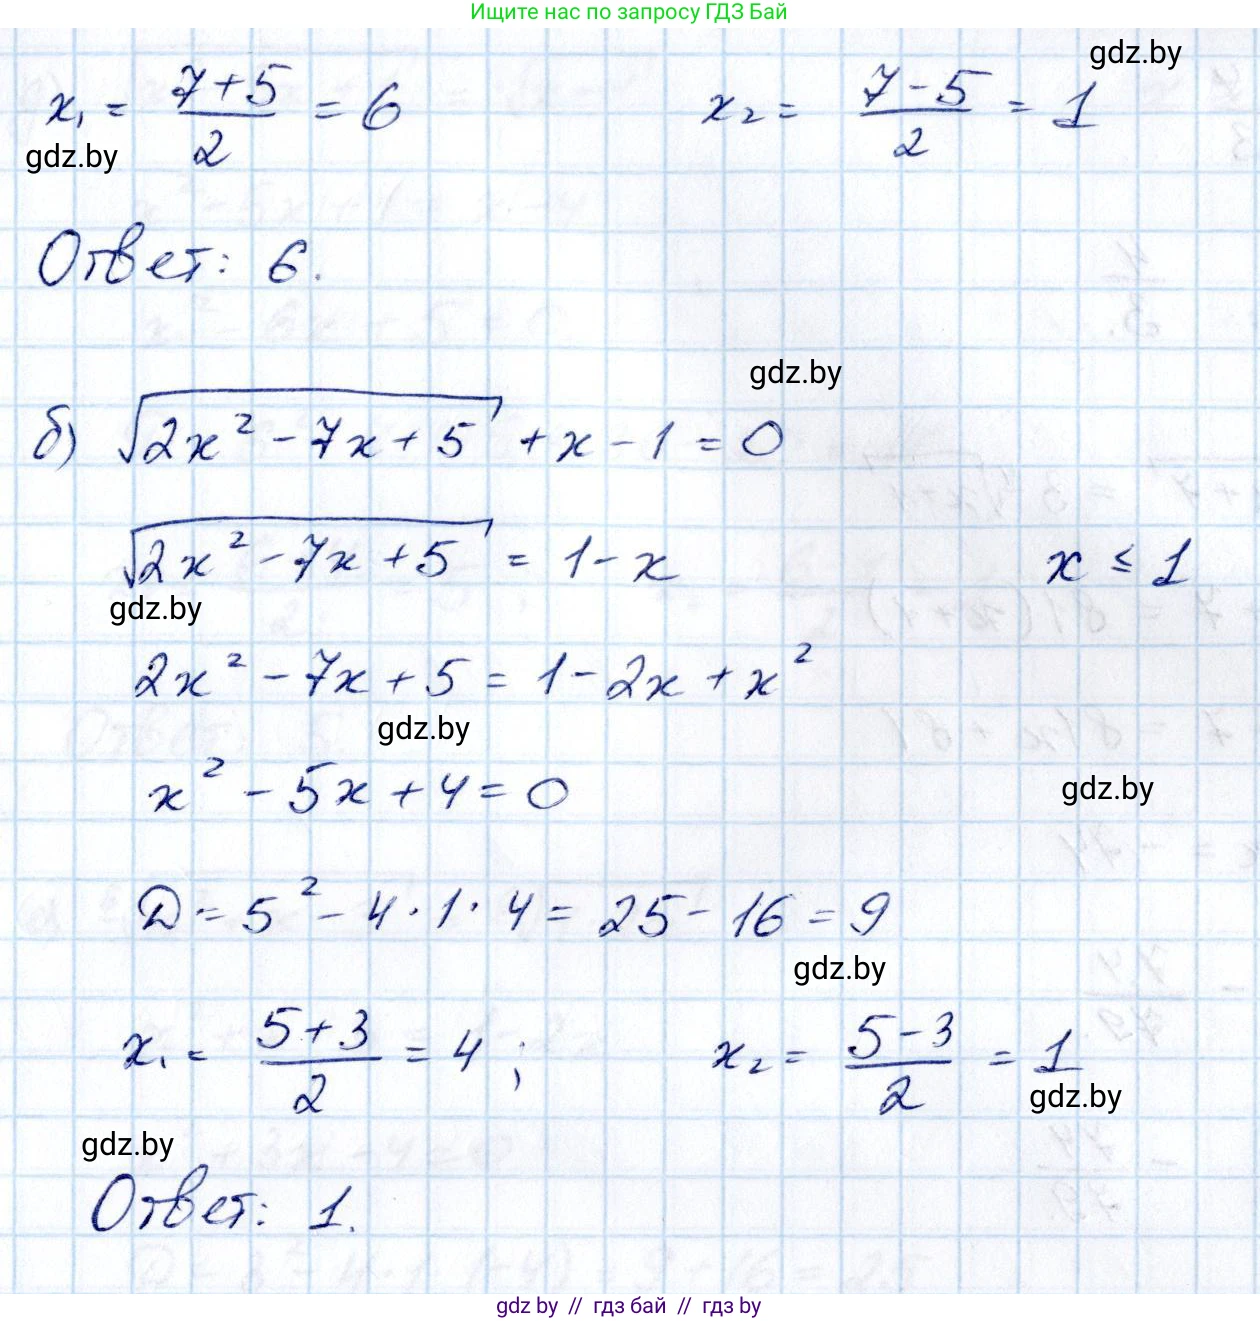 Ищите нас по запросу ГДЗ Бай
gdz.by
x₁ = (7+5)/2 = 6 x₂ = (7-5)/2 = 1
gdz.by
Ответ: 6.
gdz.by
б) √(2x² - 7x + 5) + x - 1 = 0
√(2x² - 7x + 5) = 1 - x x ≤ 1
gdz.by
2x² - 7x + 5 = 1 - 2x + x²
gdz.by
x² - 5x + 4 = 0
gdz.by
D = 5² - 4 · 1 · 4 = 25 - 16 = 9
gdz.by
x₁ = (5+3)/2 = 4 ; x₂ = (5-3)/2 = 1
gdz.by
gdz.by
Ответ: 1.
gdz by // гдз бай // гдз by